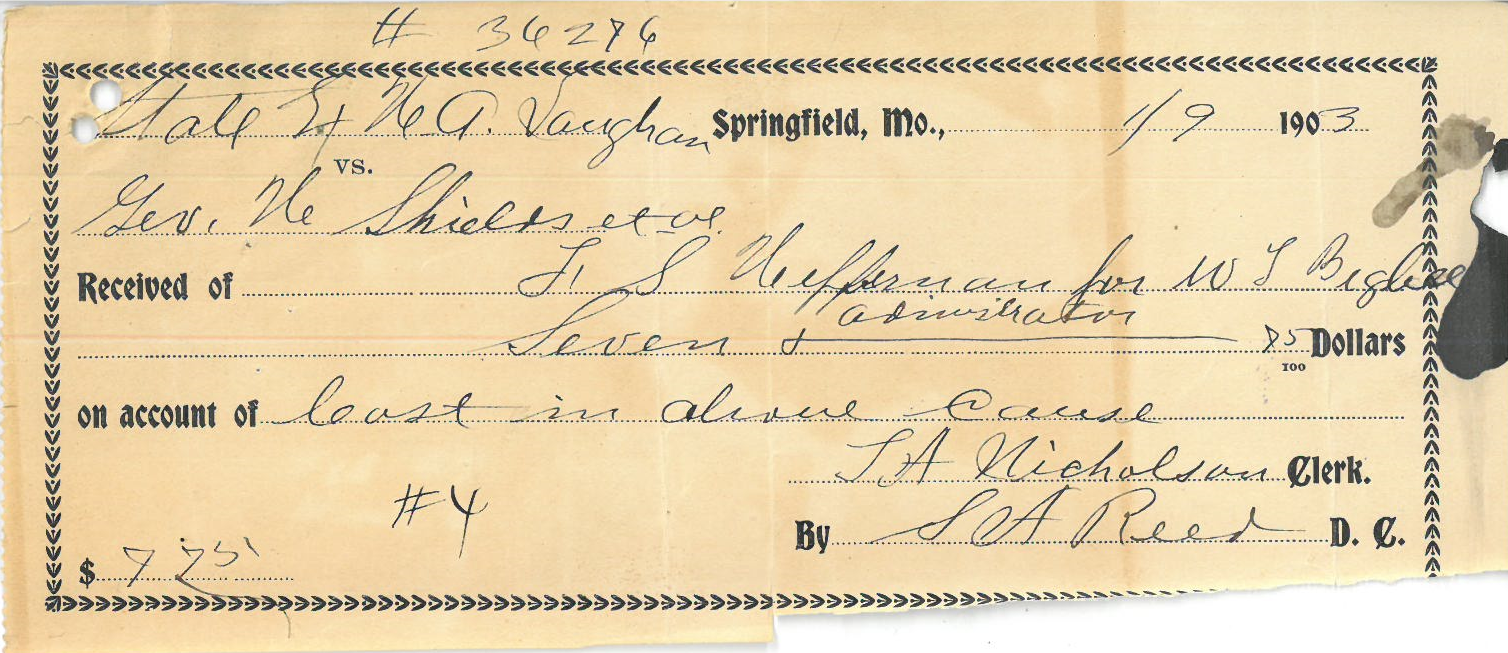 # 36276
State Ex W A. Vaughan Springfield, Mo., 1/9 1903
vs.
Geo. W Shields et al.
Received of F. S Heffernan for W T Bigbee
adminstrator
Seven & 75/100 Dollars
on account of Cost in above cause
T A Nicholson Clerk.
#4
By S A Reed D. C.
$ 7 75